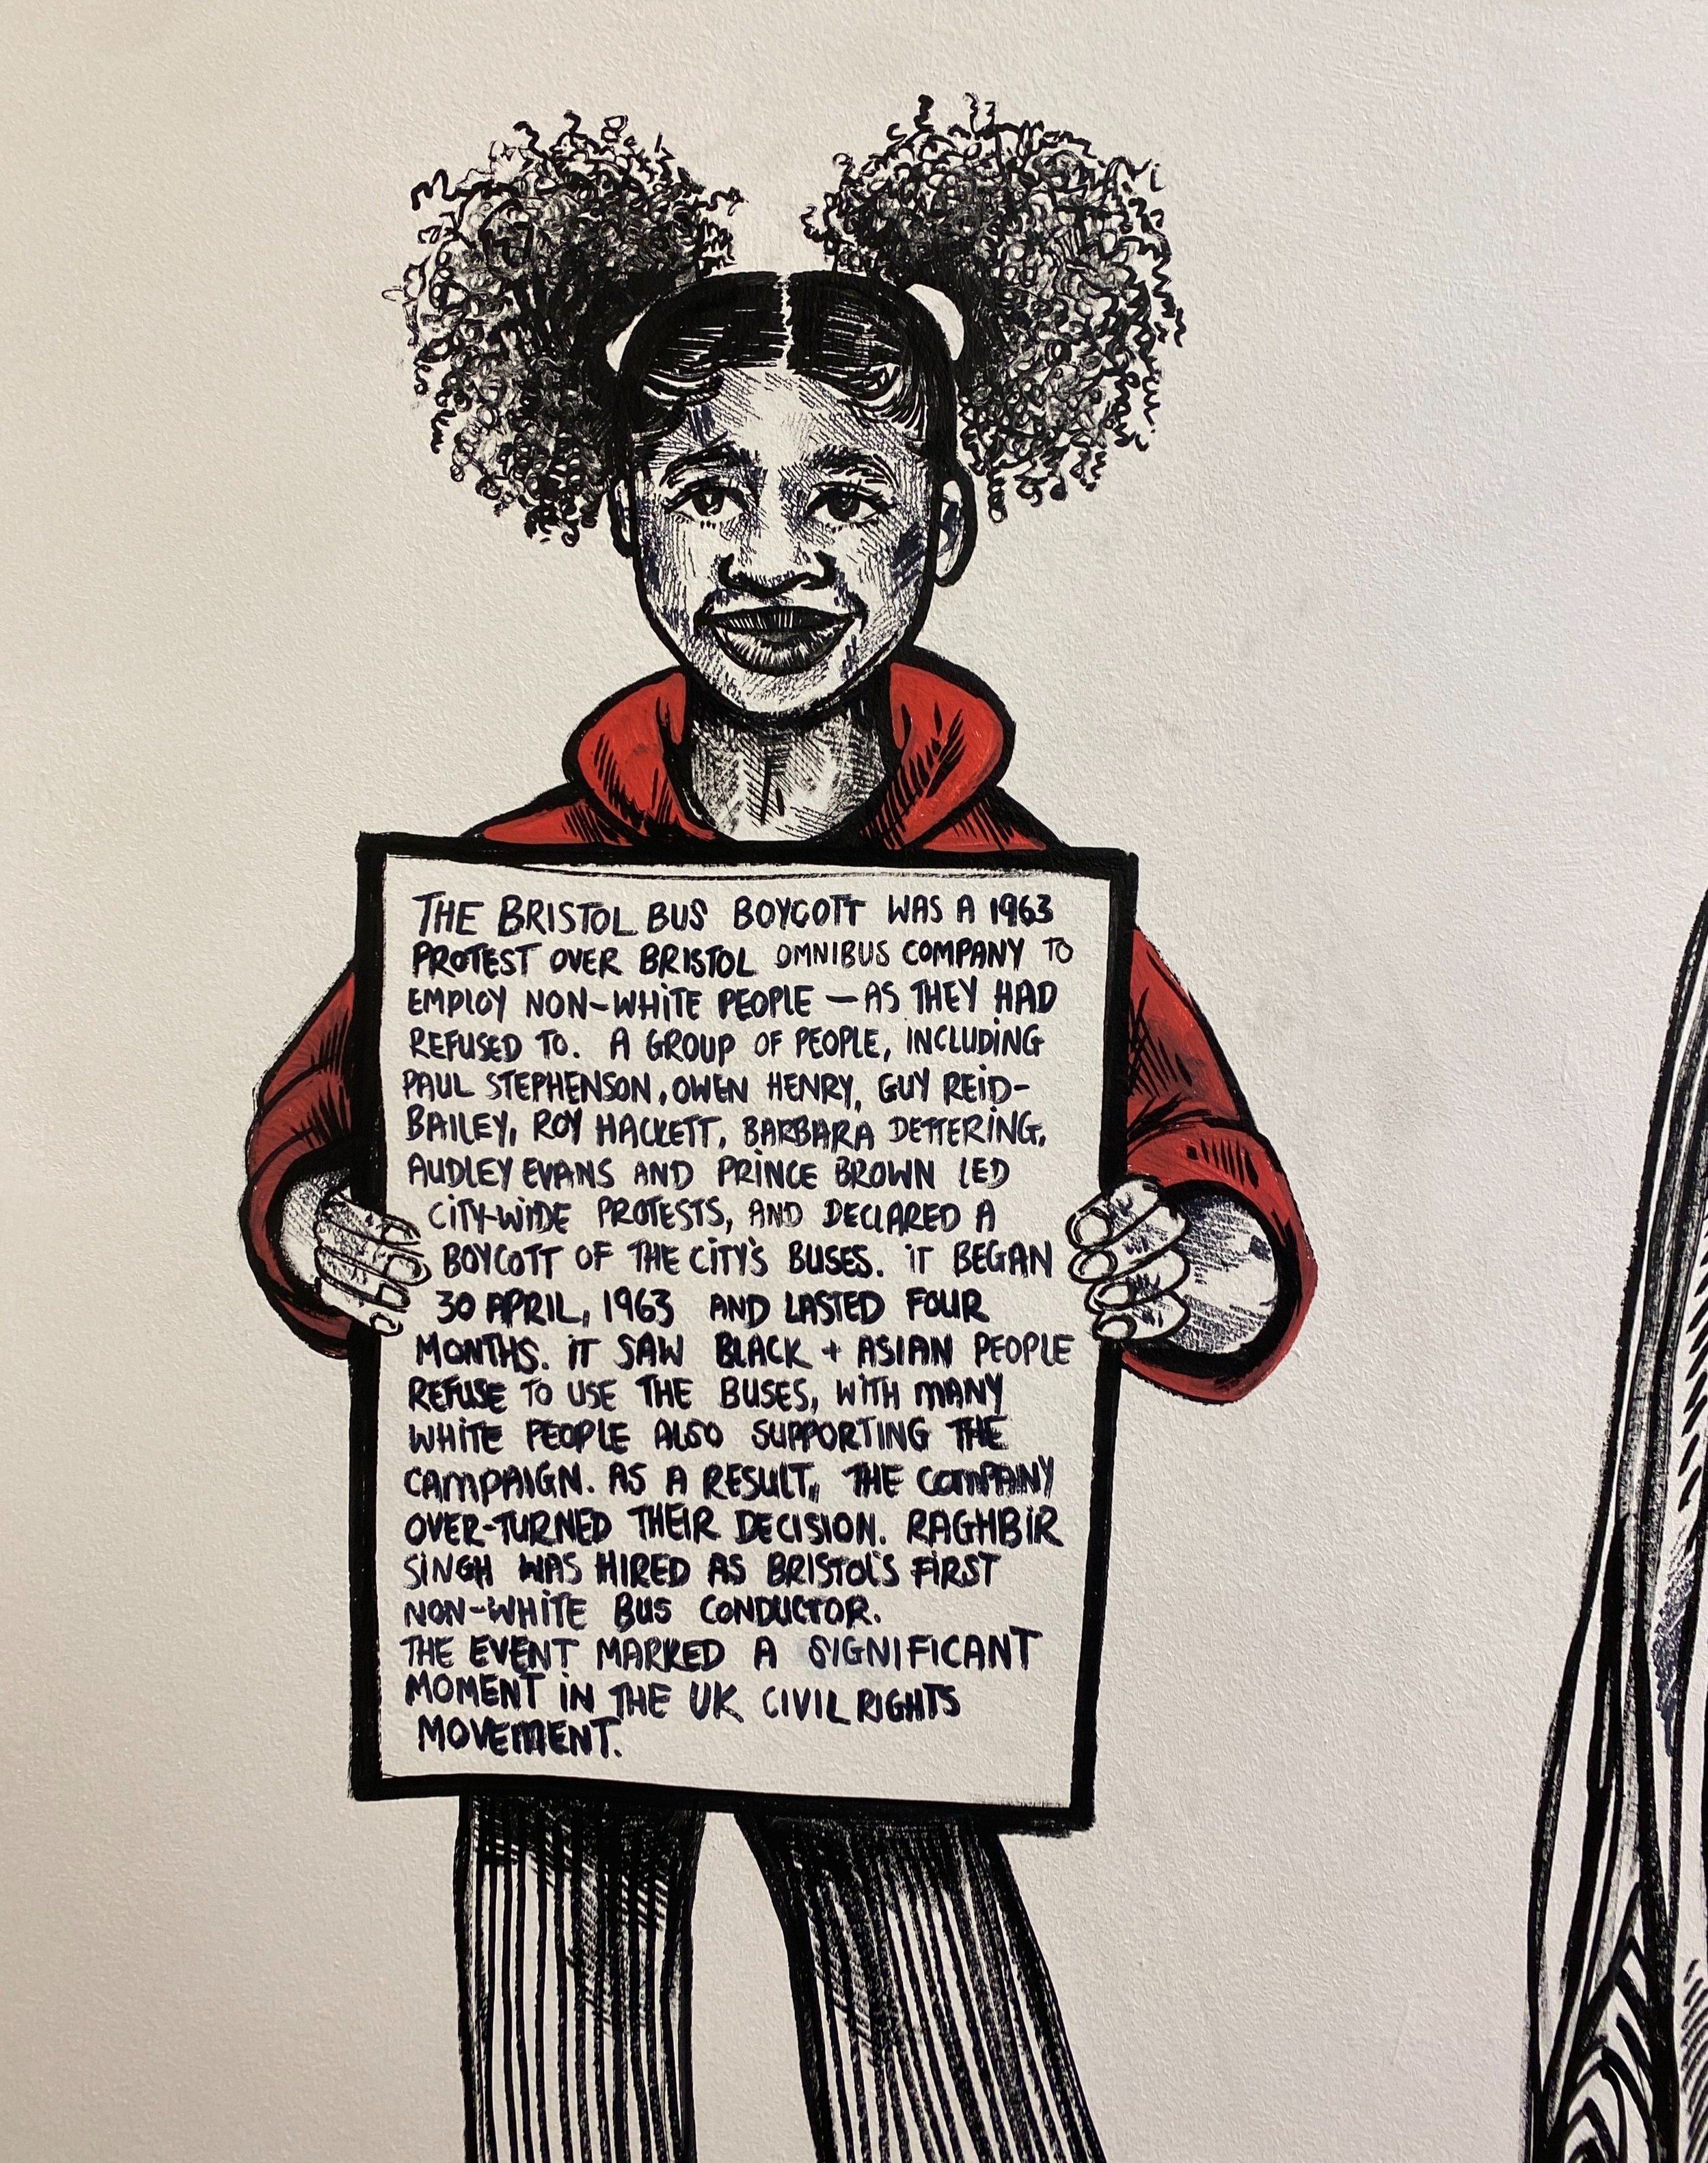 THE BRISTOL BUS BOYCOTT WAS A 1963
PROTEST OVER BRISTOL OMNIBUS COMPANY TO
EMPLOY NON-WHITE PEOPLE — AS THEY HAD
REFUSED TO. A GROUP OF PEOPLE, INCLUDING
PAUL STEPHENSON, OWEN HENRY, GUY REID-
BAILEY, ROY HACKETT, BARBARA DETTERING,
AUDLEY EVANS AND PRINCE BROWN LED
CITY-WIDE PROTESTS, AND DECLARED A
BOYCOTT OF THE CITY'S BUSES. IT BEGAN
30 APRIL, 1963 AND LASTED FOUR
MONTHS. IT SAW BLACK + ASIAN PEOPLE
REFUSE TO USE THE BUSES, WITH MANY
WHITE PEOPLE ALSO SUPPORTING THE
CAMPAIGN. AS A RESULT, THE COMPANY
OVER-TURNED THEIR DECISION. RAGHBIR
SINGH WAS HIRED AS BRISTOL'S FIRST
NON-WHITE BUS CONDUCTOR.
THE EVENT MARKED A SIGNIFICANT
MOMENT IN THE UK CIVIL RIGHTS
MOVEMENT.